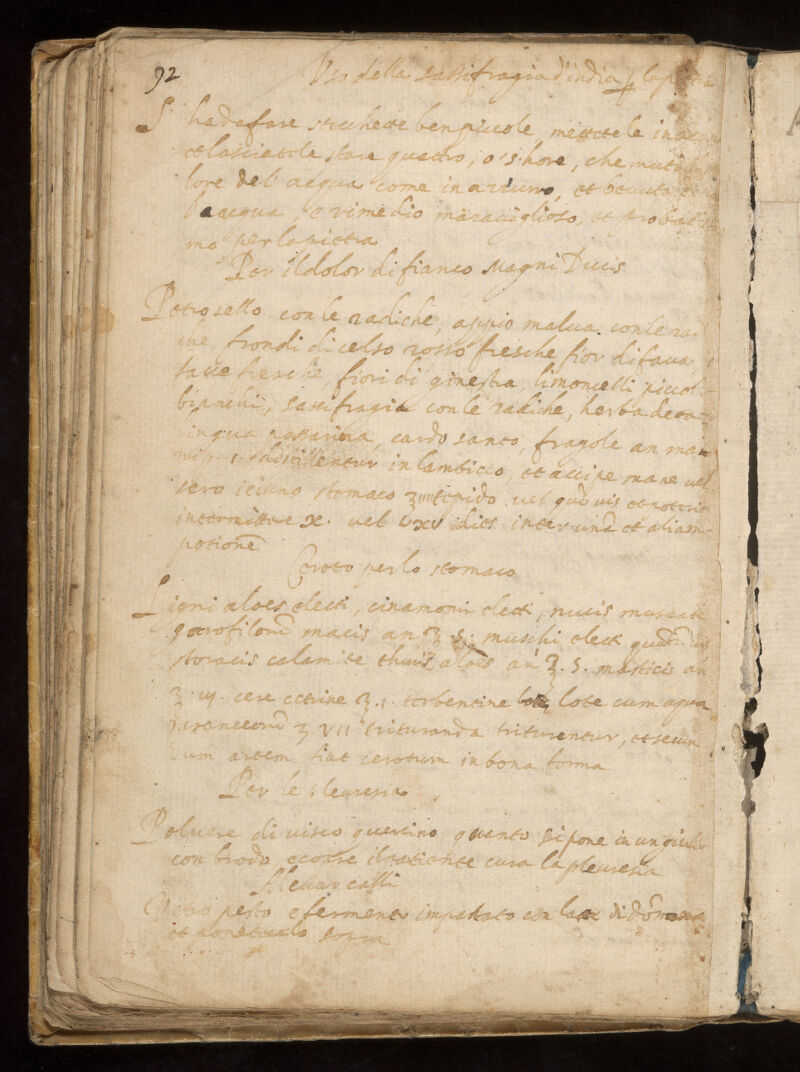 92
Uso della sassifragia d'india p la pietra
S hada fare stechette ben piccole, mettetele in acqua
et lasciatele stare quattro, o 5. hore, che muti
lore del acqua come in azzurro, et beuuta
la acqua, e rimedio marauiglioso, et probatis
mo per la pietra
Per il dolor di fianco Magni Ducis
Petrosello con le radiche, appio malua con le ra
che, frondi di celso rosso fresche fior di faua,
faue fresche, fiori di ginestra, limoncelli piccol
bianchi, sassifragia con le radiche, herba detta
lingua passarina, cardo santo, fragole an ma
nip. 1. distillentur in lambicco, et accipe mane vel
sero ieiuno stomaco tepido vel quouis et poterit
intermittere X. vel XV dies inter unã et aliam
potionẽ
Ceroto per lo stomaco
Ligni aloes electi, cinamomi electi, nucis muscate
garofilorũ macis an ʒ. 5. muschi elect
storacis calamite thuris aloes an ʒ. 5. masticis an
ʒ. iij. cere cetrine ʒ. 1. terbentine lote cum aqua
ʒ VII trituranda triturentur, et secun
dum artem fiat cerotum in bona forma
Per le pleuresia
Poluere di uisco quercino quanto si pone in un
con brodo, ecopre il patiente cura la pleuresia
A leuar calli
Vetro pesto e fermento impastato con latte di donna
et ponetuelo sopra